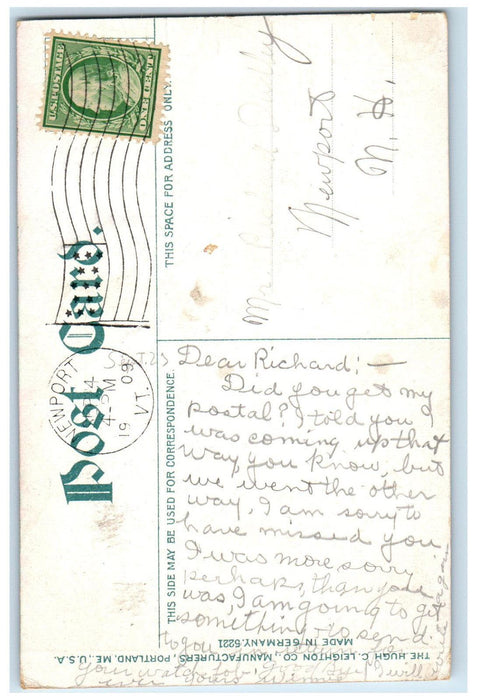 U.S. POSTAGE
ONE CENT
Post Card.
NEWPORT
4-PM
19 09
VT.
THIS SPACE FOR ADDRESS ONLY.
Newport
N. H.
THIS SIDE MAY BE USED FOR CORRESPONDENCE.
Dear Richard; —
Did you get my
postal? I told you I
was coming up that
way you know, but
we went the other
way, I am sorry to
have missed you
I was more sorry
perhaps, than you
was, I am going to get
something to send
to you
THE HUGH C. LEIGHTON CO., MANUFACTURERS, PORTLAND, ME., U.S.A.
MADE IN GERMANY. 6221